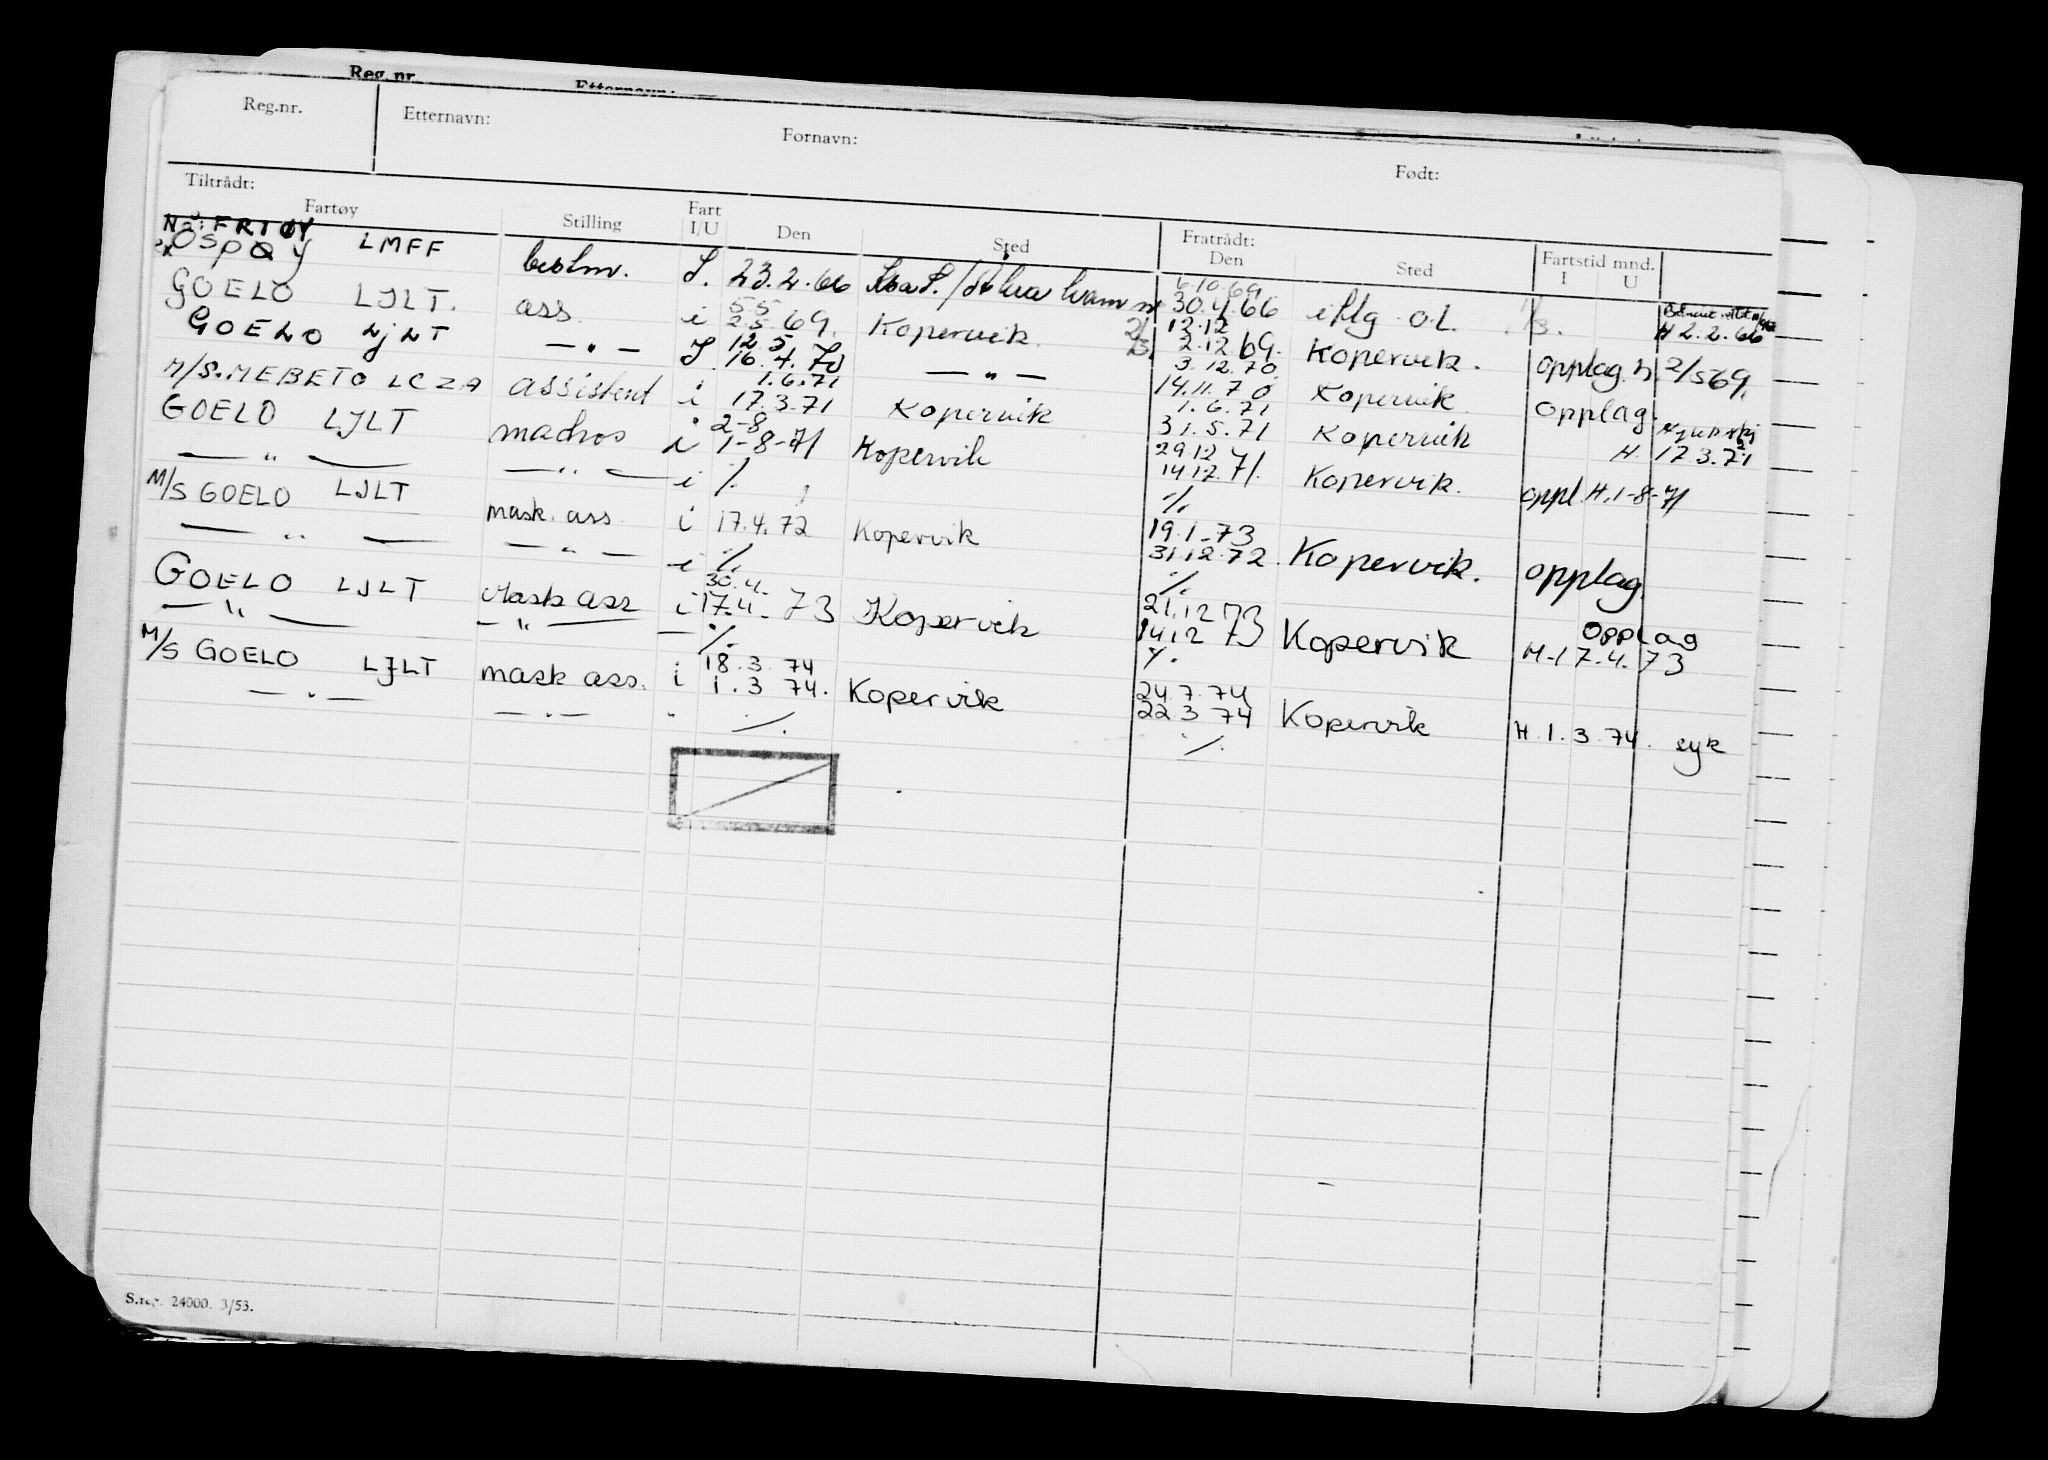 Reg.nr.
Reg.nr. Etternavn: Fornavn: Født:
Tiltrådt: Fratrådt:
Fartøy Stilling Fart I/U Den Sted Den Sted Fartstid mnd. I U
Nå: FRTØY
ex OSPØY LMFF bestm. I. 23.2.66 30.4.66 H 2.2.66
6.10.69
GOELO LJLT. ass. i 5.5 2.5 69. Kopervik. 12.12 2.12 69. Kopervik. opplag. h. 2/5 69.
GOELO LJLT — " — I 12.5 16.4.70 — " — 3.12.70 14.11.70 Kopervik opplag.
M/S. MEBETO LCZA assistent i 1.6.71 17.3.71 Kopervik 1.6.71 31.5.71 Kopervik H. 17.3.71
GOELO LJLT matros i 2-8 1-8-71 Kopervik 29.12 14.12.71. Kopervik. oppl. H. 1-8-71
— " — — " — i ./. ./.
M/S GOELO LJLT mask. ass. i 17.4.72 Kopervik 19.1.73 31.12.72. Kopervik. opplag.
— " — — " — i ./. ./.
GOELO LJLT Mask ass i 30.4. 17.4.73 Kopervik 21.12 73 14.12 73 Kopervik opplag H-17.4.73
— " — — " — — ./. ./.
M/S GOELO LJLT mask ass. i 18.3.74 1.3 74. Kopervik 24.7.74 22 3 74 Kopervik H. 1.3.74. syk
— " — — " — " ./. ./.
S.reg. 24000. 3/53.